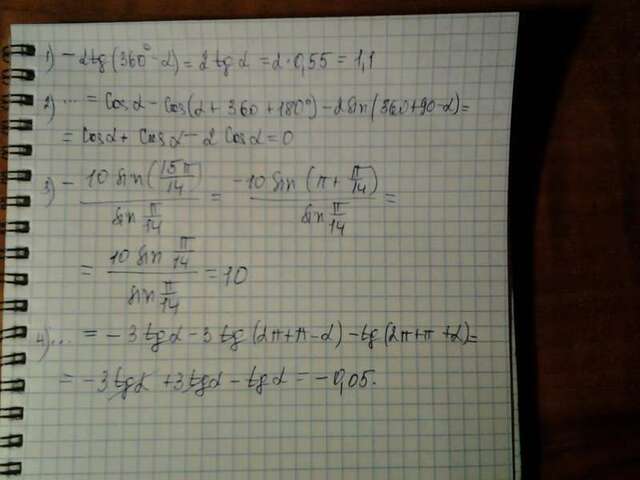 1) -2tg(360°-α) = 2tgα = 2·0,55 = 1,1
2) ... = Cosα - Cos(α + 360 + 180°) - 2sin(360+90-α) =
= Cosα + Cosα - 2 Cosα = 0
3) - 10 sin(15π/14) / sin π/14 = -10 sin(π + π/14) / sin π/14 =
= 10 sin π/14 / sin π/14 = 10
4) ... = -3tgα - 3tg(2π+π-α) - tg(2π+π+α) =
= -3tgα + 3tgα - tgα = -0,05.